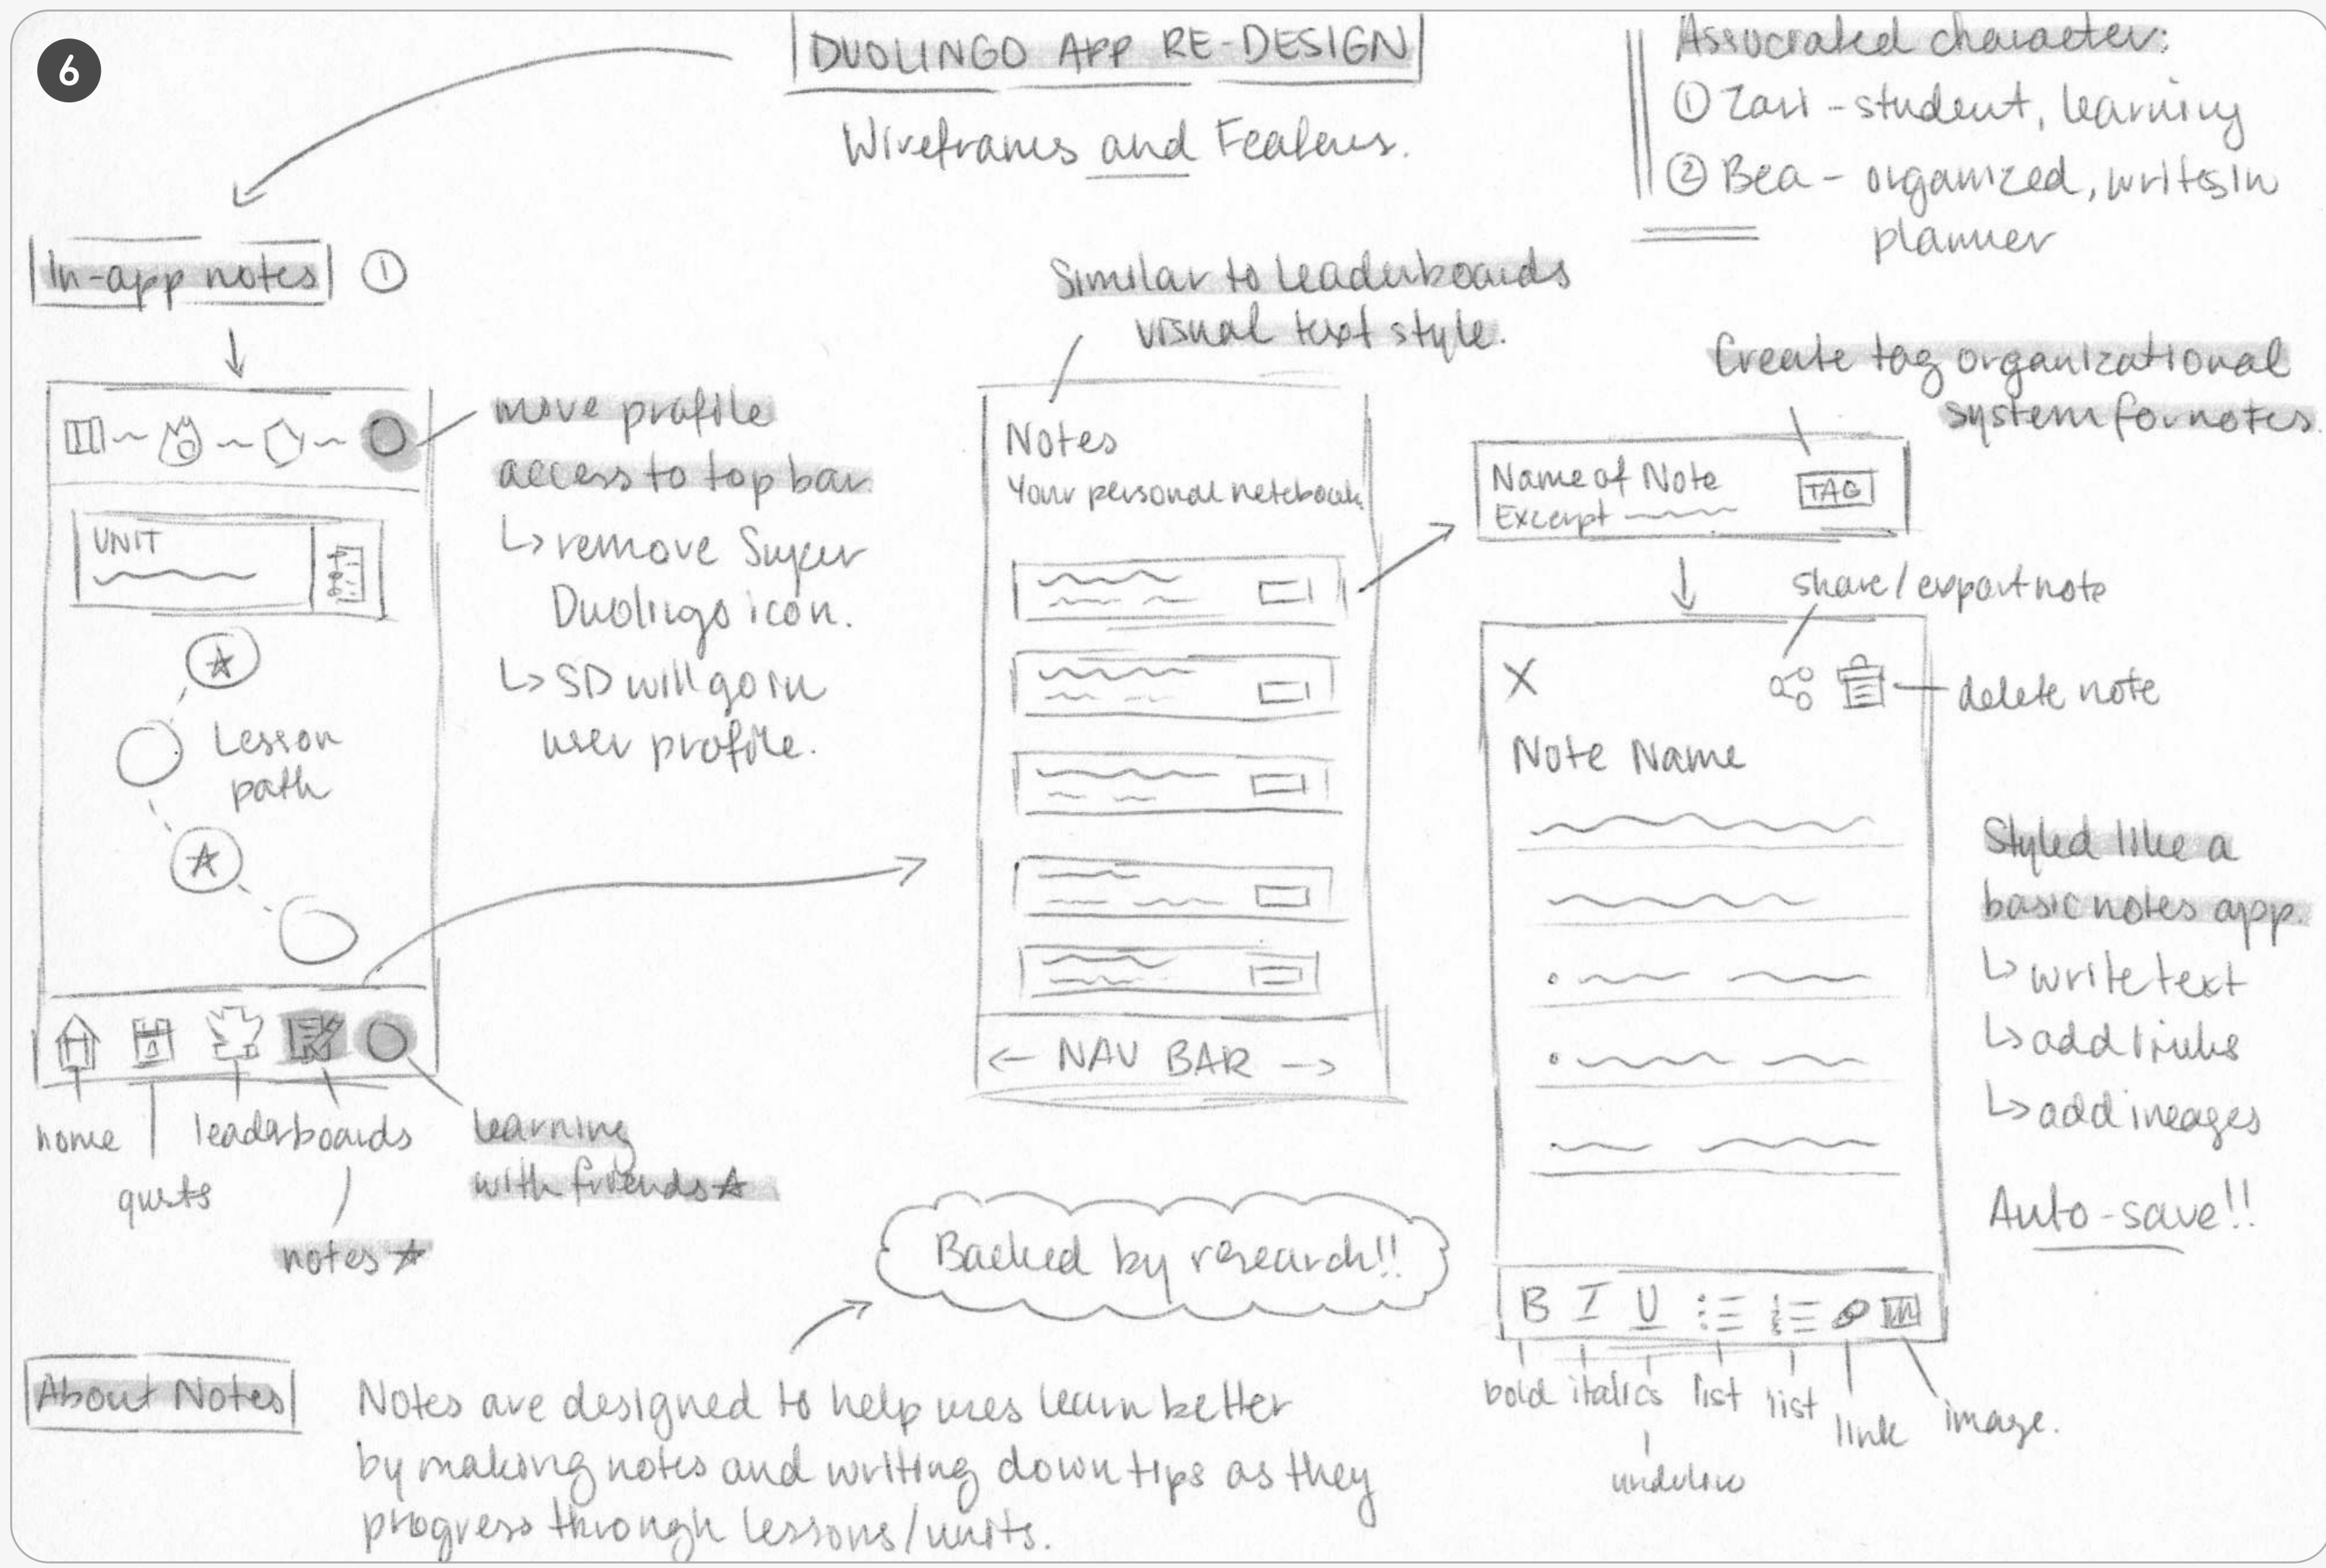 6
DUOLINGO APP RE-DESIGN
Wireframes and Features.
Associated character:
① Zari - student, learning
② Bea - organized, writes in
planner
In-app notes ①
move profile
access to top bar
↳ remove Super
Duolingo icon.
↳ SD will go in
user profile.
UNIT
Lesson
path
home
quests
leaderboards
notes ☆
learning
with friends ☆
Similar to leaderboards
visual text style.
Notes
Your personal notebook
← NAV BAR →
Create tag organizational
system for notes.
Name of Note
TAG
Excerpt
share / export note
X
delete note
Note Name
Styled like a
basic notes app.
↳ write text
↳ add links
↳ add images
Auto-save!!
B I U
bold italics list list link image.
underline
Backed by research!!
About Notes
Notes are designed to help uses learn better
by making notes and writing down tips as they
progress through lessons/units.